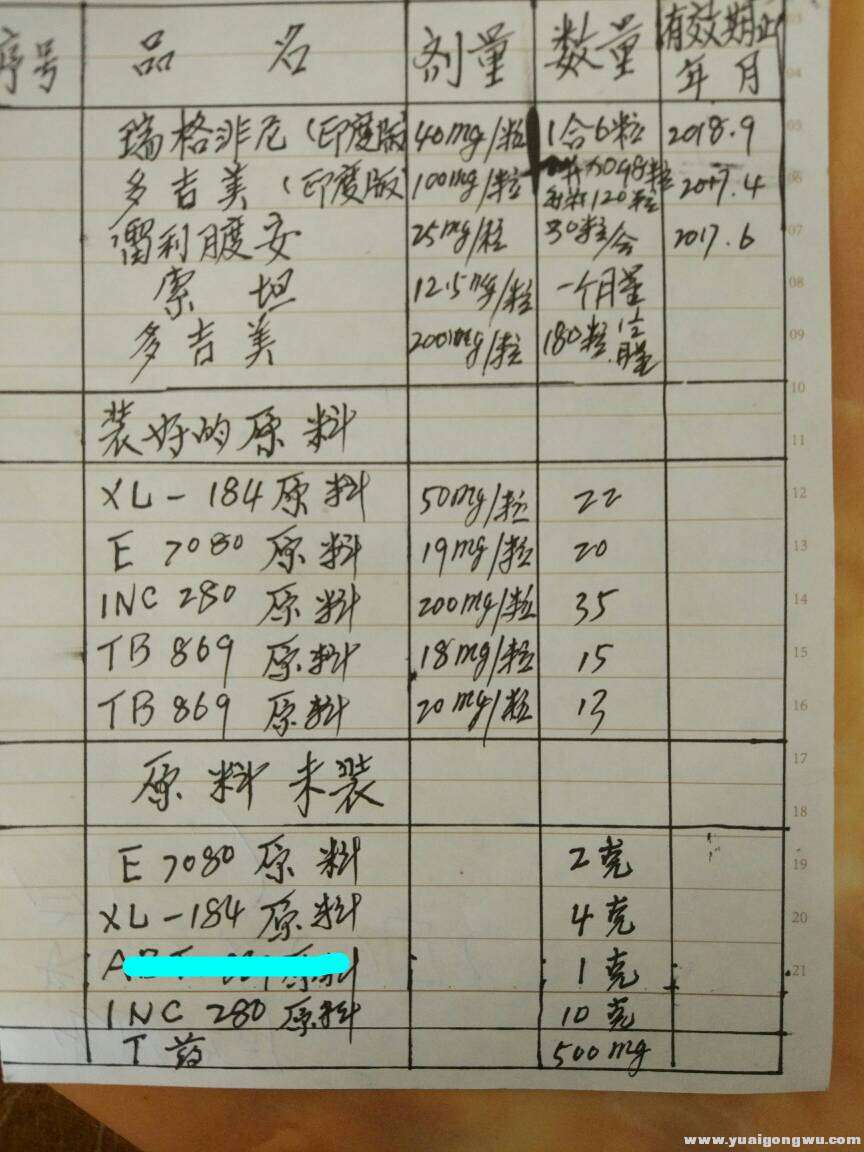 序号 品名 剂量 数量 有效期止
年月
瑞格非尼(印度版) 40mg/粒 1合6粒 2018.9
多吉美(印度版) 100mg/粒 120粒 2017.4
雷利度安 25mg/粒 30粒/合 2017.6
索坦 12.5mg/粒 一个月量
多吉美 200mg/粒 180粒
装好的原料
XL-184原料 50mg/粒 22
E7080原料 19mg/粒 20
INC280原料 200mg/粒 35
TB869原料 18mg/粒 15
TB869原料 20mg/粒 13
原料未装
E7080原料 2克
XL-184原料 4克
原料 1克
INC280原料 10克
T药 500mg
03
04
05
06
07
08
09
10
11
12
13
14
15
16
17
18
19
20
21
www.yuaigongwu.com